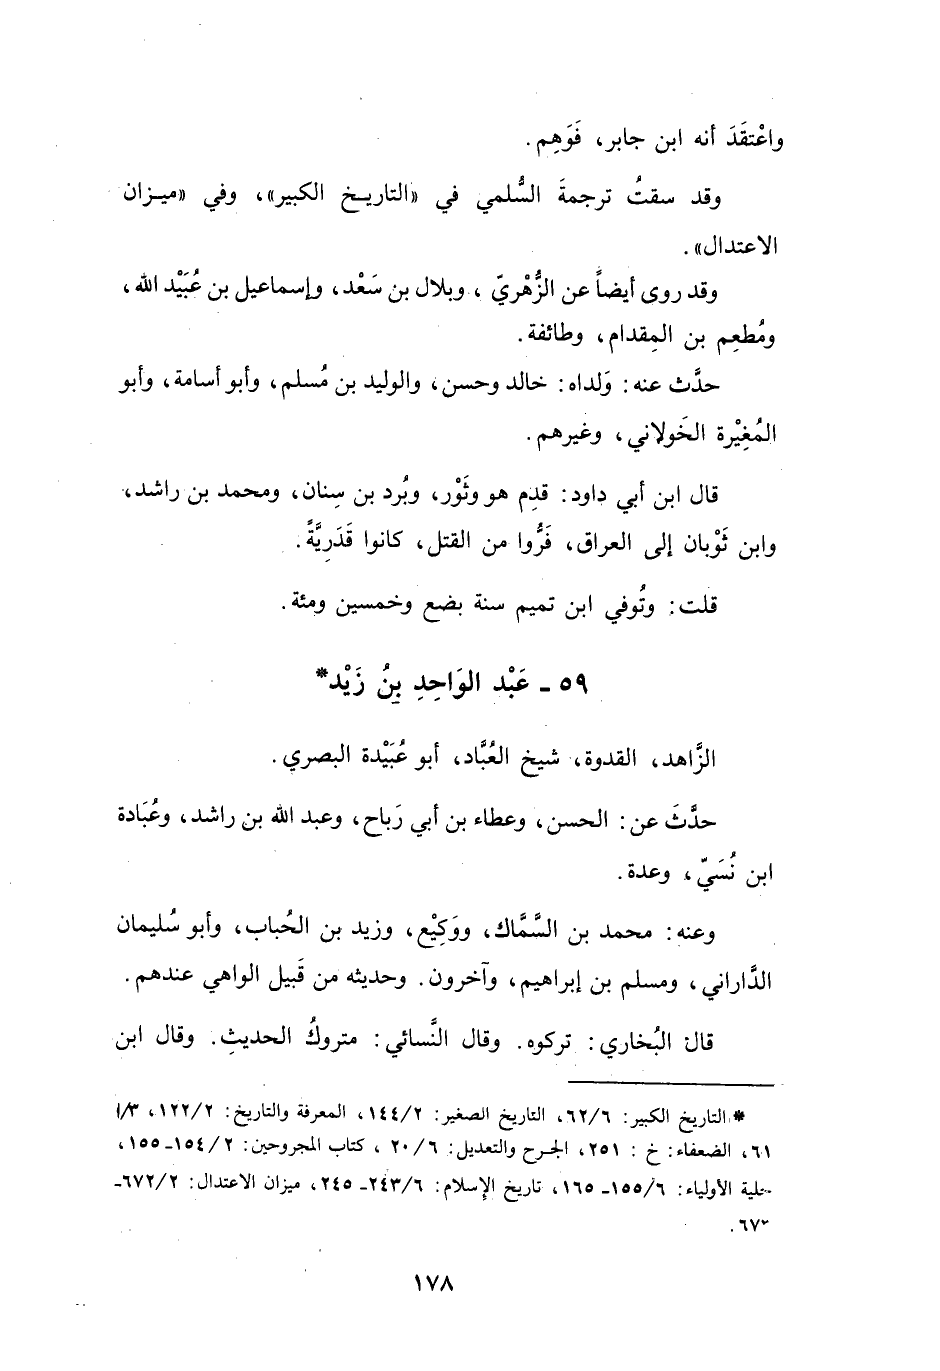 واعْتقَدَ أنه ابن جابر، فَوَهِم.
وقد سقتُ ترجمةَ السُّلمي في «التاريخ الكبير»، وفي «ميزان
الاعتدال».
وقد روى أيضاً عن الزُّهْريّ، وبلال بن سَعْد، وإسماعيل بن عُبَيْد الله،
ومُطعِم بن المِقدام، وطائفة.
حدَّث عنه: وَلداه: خالد وحسن، والوليد بن مُسلم، وأبو أسامة، وأبو
المُغِيْرة الخَولاني، وغيرهم.
قال ابن أبي داود: قدِم هو وثَوْر، وبُرد بن سِنان، ومحمد بن راشد،
وابن ثَوْبان إلى العراق، فَرُّوا من القتل، كانوا قَدَرِيَّةً.
قلت: وتُوفي ابن تميم سنة بضع وخمسين ومئة.
٥٩ - عَبْد الوَاحِدِ بنُ زَيْد*
الزَّاهد، القدوة، شيخ العُبَّاد، أبو عُبَيْدة البصري.
حدَّثَ عن: الحسن، وعطاء بن أبي رَباح، وعبد الله بن راشد، وعُبَادة
ابن نُسَيّ، وعدة.
وعنه: محمد بن السَّمَّاك، ووَكِيْع، وزيد بن الحُباب، وأبو سُليمان
الدَّاراني، ومسلم بن إبراهيم، وآخرون. وحديثه من قَبيل الواهي عندهم.
قال البُخاري: تركوه. وقال النَّسائي: متروكُ الحديثِ. وقال ابن
* التاريخ الكبير: ٦٢/٦، التاريخ الصغير: ١٤٤/٢، المعرفة والتاريخ: ١٢٢/٢، ٣/
٦١، الضعفاء: خ : ٢٥١، الجرح والتعديل: ٢٠/٦ ، كتاب المجروحين: ١٥٤/٢ـ ١٥٥،
حلية الأولياء: ١٥٥/٦ـ ١٦٥، تاريخ الإسلام: ٢٤٣/٦ـ ٢٤٥، ميزان الاعتدال: ٦٧٢/٢ـ
٦٧٣.
١٧٨